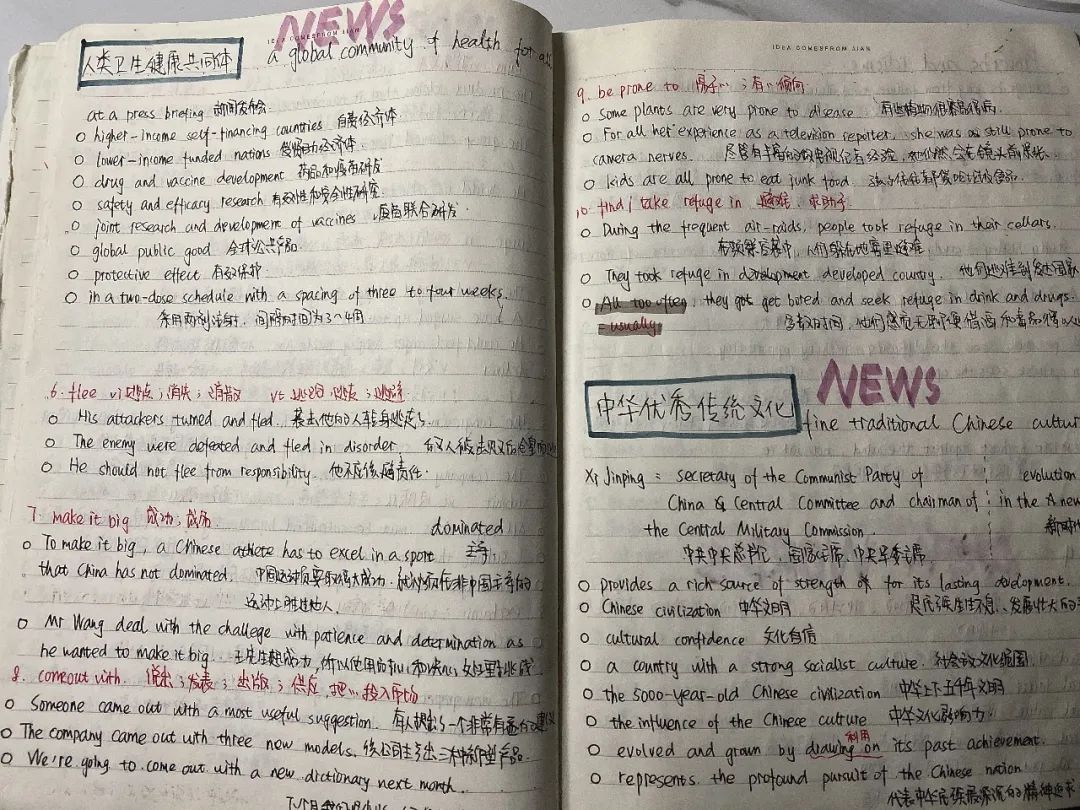 NEWS
IDEA COMESFROM JIAN
人类卫生健康共同体 a global community of health for all
at a press briefing 新闻发布会
o higher-income self-financing countries 自费经济体
o lower-income funded nations 受资助经济体
o drug and vaccine development 药品和疫苗研发
o safety and efficary research 有效性和安全性研究
o joint research and development of vaccines 疫苗联合研发
o global public good 全球公共产品
o protective effect 有效保护
o in a two-dose schedule with a spacing of three to four weeks
采用两剂注射,间隔时间为3~4周
6. flee vi 逃走;消失;消散 vt 逃避;逃走;逃离
o His attackers turned and fled. 袭击他的人转身逃走了.
o The enemy were defeated and fled in disorder 敌人被击败后
o He should not flee from responsibility. 他不应该逃避责任.
7. make it big 成功;成名 dominated
o To make it big, a Chinese athlete has to excel in a sport 主导
that China has not dominated. 中国运动员要取得大成功,就必须在非中国主导的
运动上胜过他人.
o Mr Wang deal with the challege with patience and determination as
he wanted to make it big. 王先生想成功,所以他用耐心和决心
8. comeout with. 说出;发表;出版;供应 把…投入市场
o Someone came out with a most useful suggestion. 有人提出了一个非常有益的建议
o The company came out with three new models. 该公司生产出三种新型产品.
o We're going to come out with a new dictionary next month.
IDEA COMESFROM JIAN
9. be prone to 易于…;有…倾向
o Some plants are very prone to disease. 有些植物很容易得病.
o For all her experience as a television reporter, she was still prone to
camera nerves. 尽管有丰富的电视记者经验,她仍然会在镜头前紧张.
o kids are all prone to eat junk food.
10. find / take refuge in 避难,求助于
o During the frequent air-raids, people took refuge in their cellars.
在频繁空袭中,人们躲在地窖里避难
o They took refuge in developed country. 他们避难到发达国家
o All too often, they get bored and seek refuge in drink and drugs.
= usually 多数时间,他们感觉无聊便借酒和毒品
NEWS
中华优秀传统文化 fine traditional Chinese cultur
Xi Jinping = secretary of the Communist Party of evolution
China & Central Committee and chairman of in the A new
the Central Military Commission. 新时代
中共中央总书记,国家主席,中央军委主席.
o provides a rich source of strength for its lasting development.
o Chinese civilization 中华文明 是民族生生不息、发展壮大的
o cultural confidence 文化自信
o a country with a strong socialist culture. 社会主义文化强国.
o the 5000-year-old Chinese civilization 中华上下五千年文明
o the influence of the Chinese culture 中华文化影响力
利用
o evolved and grown by drawing on its past achievement.
o represents the profound pursuit of the Chinese nation
代表中华民族最深沉的精神追求